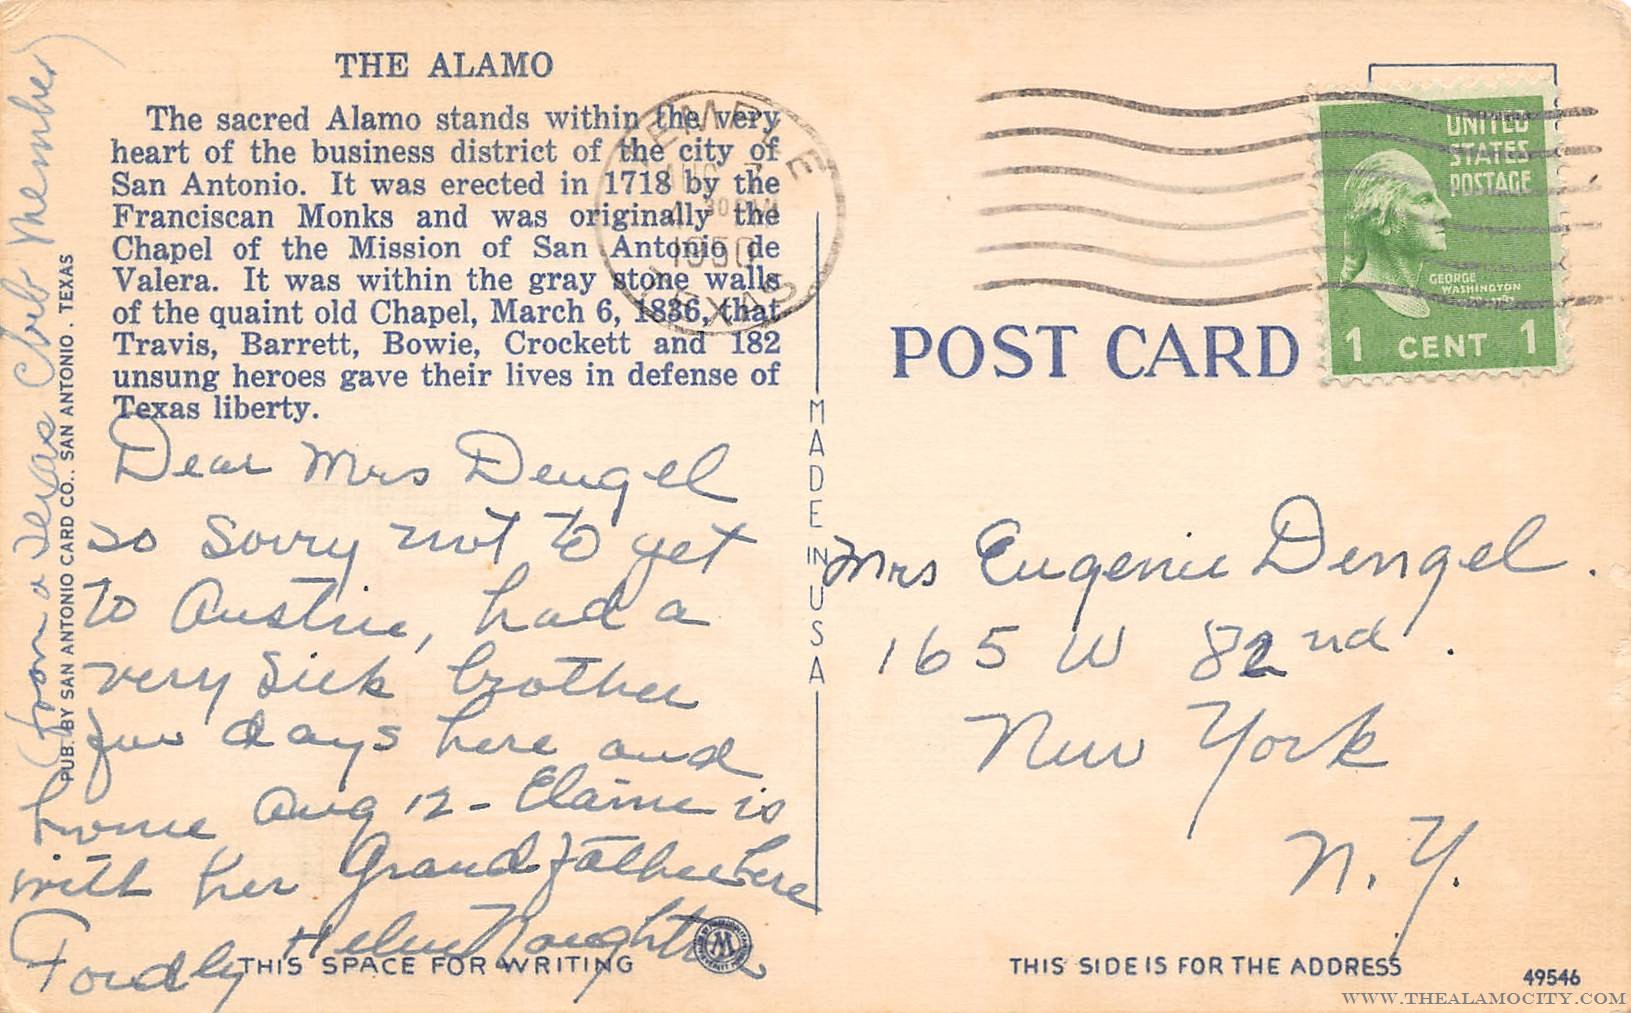 THE ALAMO
The sacred Alamo stands within the very
heart of the business district of the city of
San Antonio. It was erected in 1718 by the
Franciscan Monks and was originally the
Chapel of the Mission of San Antonio de
Valera. It was within the gray stone walls
of the quaint old Chapel, March 6, 1836, that
Travis, Barrett, Bowie, Crockett and 182
unsung heroes gave their lives in defense of
Texas liberty.
Dear Mrs Dengel
so sorry not to get
to Austin, had a
very sick brother
few days here and
home Aug 12 - Elaine is
with her Grandfather here
Fondly Helen Naughton
(from a Texas Club Member)
PUB. BY SAN ANTONIO CARD CO., SAN ANTONIO, TEXAS
THIS SPACE FOR WRITING
MADE IN USA
TEMPLE
AUG 7
30 PM
1950
TEXAS
UNITED
STATES
POSTAGE
GEORGE
WASHINGTON
1 CENT 1
POST CARD
Mrs Eugenie Dengel.
165 W 82nd.
New York
N.Y.
THIS SIDE IS FOR THE ADDRESS
49546
WWW.THEALAMOCITY.COM